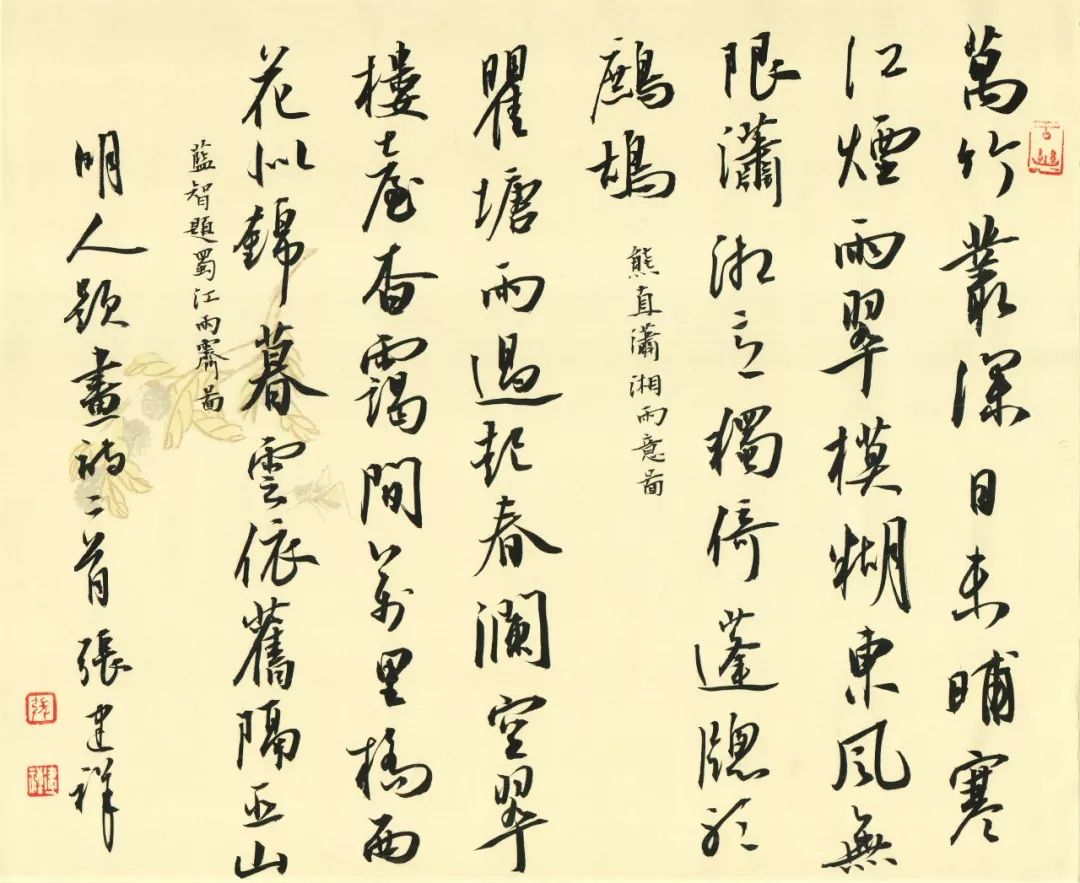 萬竹叢深日未晡寒
江煙雨翠模糊東風無
限瀟湘意獨倚蓬牕聽
鷓鴣
熊直瀟湘雨意啚
瞿塘雨過起春瀾空翠
樓臺杳靄間萬里橋西
花似錦暮雲依舊隔巫山
藍智題蜀江雨霽啚
明人題畫詩二首張建祥